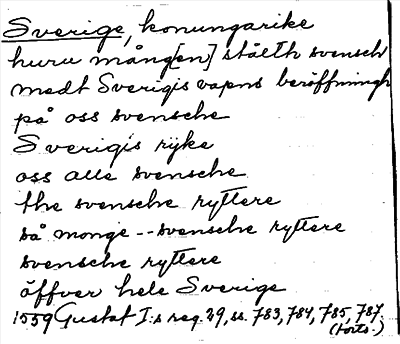 Sverige, konungarike
huru mång[en] ståltt svensch
medt Sverigis vapns beröffningh
på oss svensche
Sverigis rijke
oss alle svensche
the svensche ryttere
så monge -- svensche ryttere
svensche ryttere
öffver hele Sverige
1559 Gustaf I:s reg. 29, ss. 783, 784, 785, 787.
(forts.)